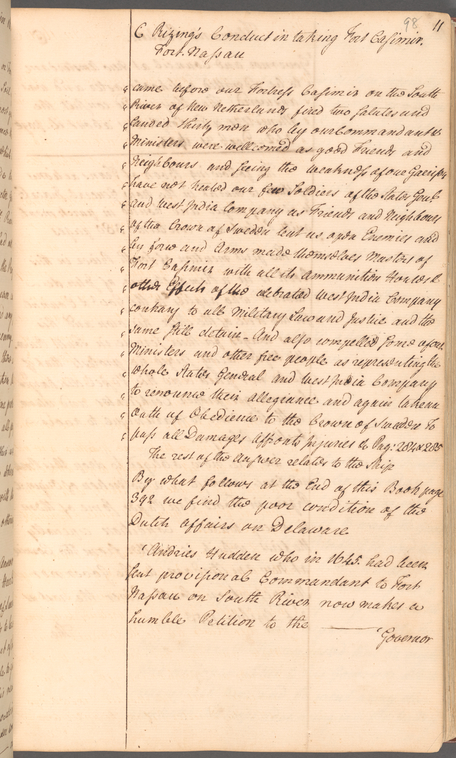 98 11
C Rizing's Conduct in taking Fort Casimir.
Fort Nassau
"came before our Fortress Casimir on the South
"River of New Netherland, fired two Salutes and
"landed Thirty men who by our Commandant &
"Ministers were wellcomed as good Friends and
"Neighbours and seeing the weakness of our Garrison
"have not treated our few Soldiers of the States Genl
"and West India Company as Friends and Neighbours
"of the Crown of Sweden but as open Enemies and
"in force and Arms made themselves Masters of
"Fort Casimir with all its ammunition Houses &
"other Effects of the celebrated West India Company
"contrary to all Military Law and Justice and the
"same still detain - And also compelled some of our
"Ministers and other free people as representing the
"whole States General and West India Company
"to renounce their allegiance and again taken
"Oath of Obedience to the Crown of Sweden to
"pass all Damages Affronts Injures &c Pag: 284 & 285
The rest of the Answer relates to the Ship
By what follows at the End of this Book page
392 we find the poor condition of the
Dutch Affairs on Delaware
"Andries Hudden who in 1645 had been
put provisional Commandant to Fort
Nassau on South River now makes a
humble Petition to the
"Governor